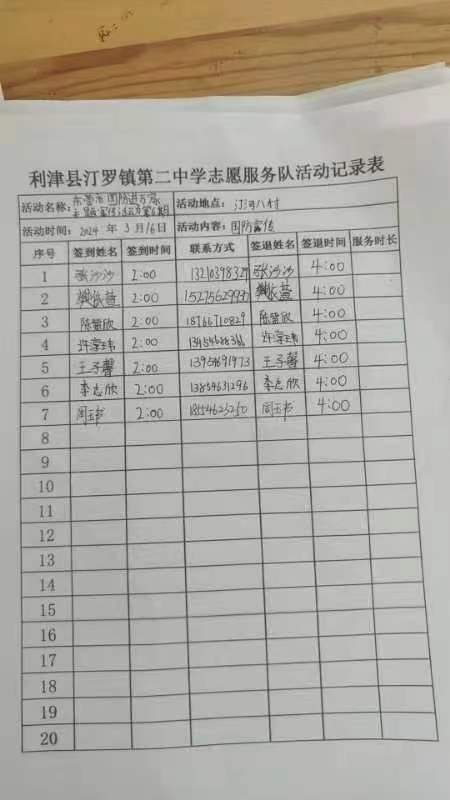 利津县汀罗镇第二中学志愿服务队活动记录表
活动名称: 东营市国防进万家
主题宣传活动第6期
活动地点: 汀河八村
活动时间: 2024 年 3 月16日 活动内容: 国防宣传
序号 签到姓名 签到时间 联系方式 签退姓名 签退时间 服务时长
1 张沙沙 2:00 张沙沙 4:00
2 2:00 4:00
3 2:00 18766710829 4:00
4 2:00 4:00
5 王子馨 2:00 13954691973 王子馨 4:00
6 李志欣 2:00 13854631296 李志欣 4:00
7 周玉书 2:00 周玉书 4:00
8
9
10
11
12
13
14
15
16
17
18
19
20